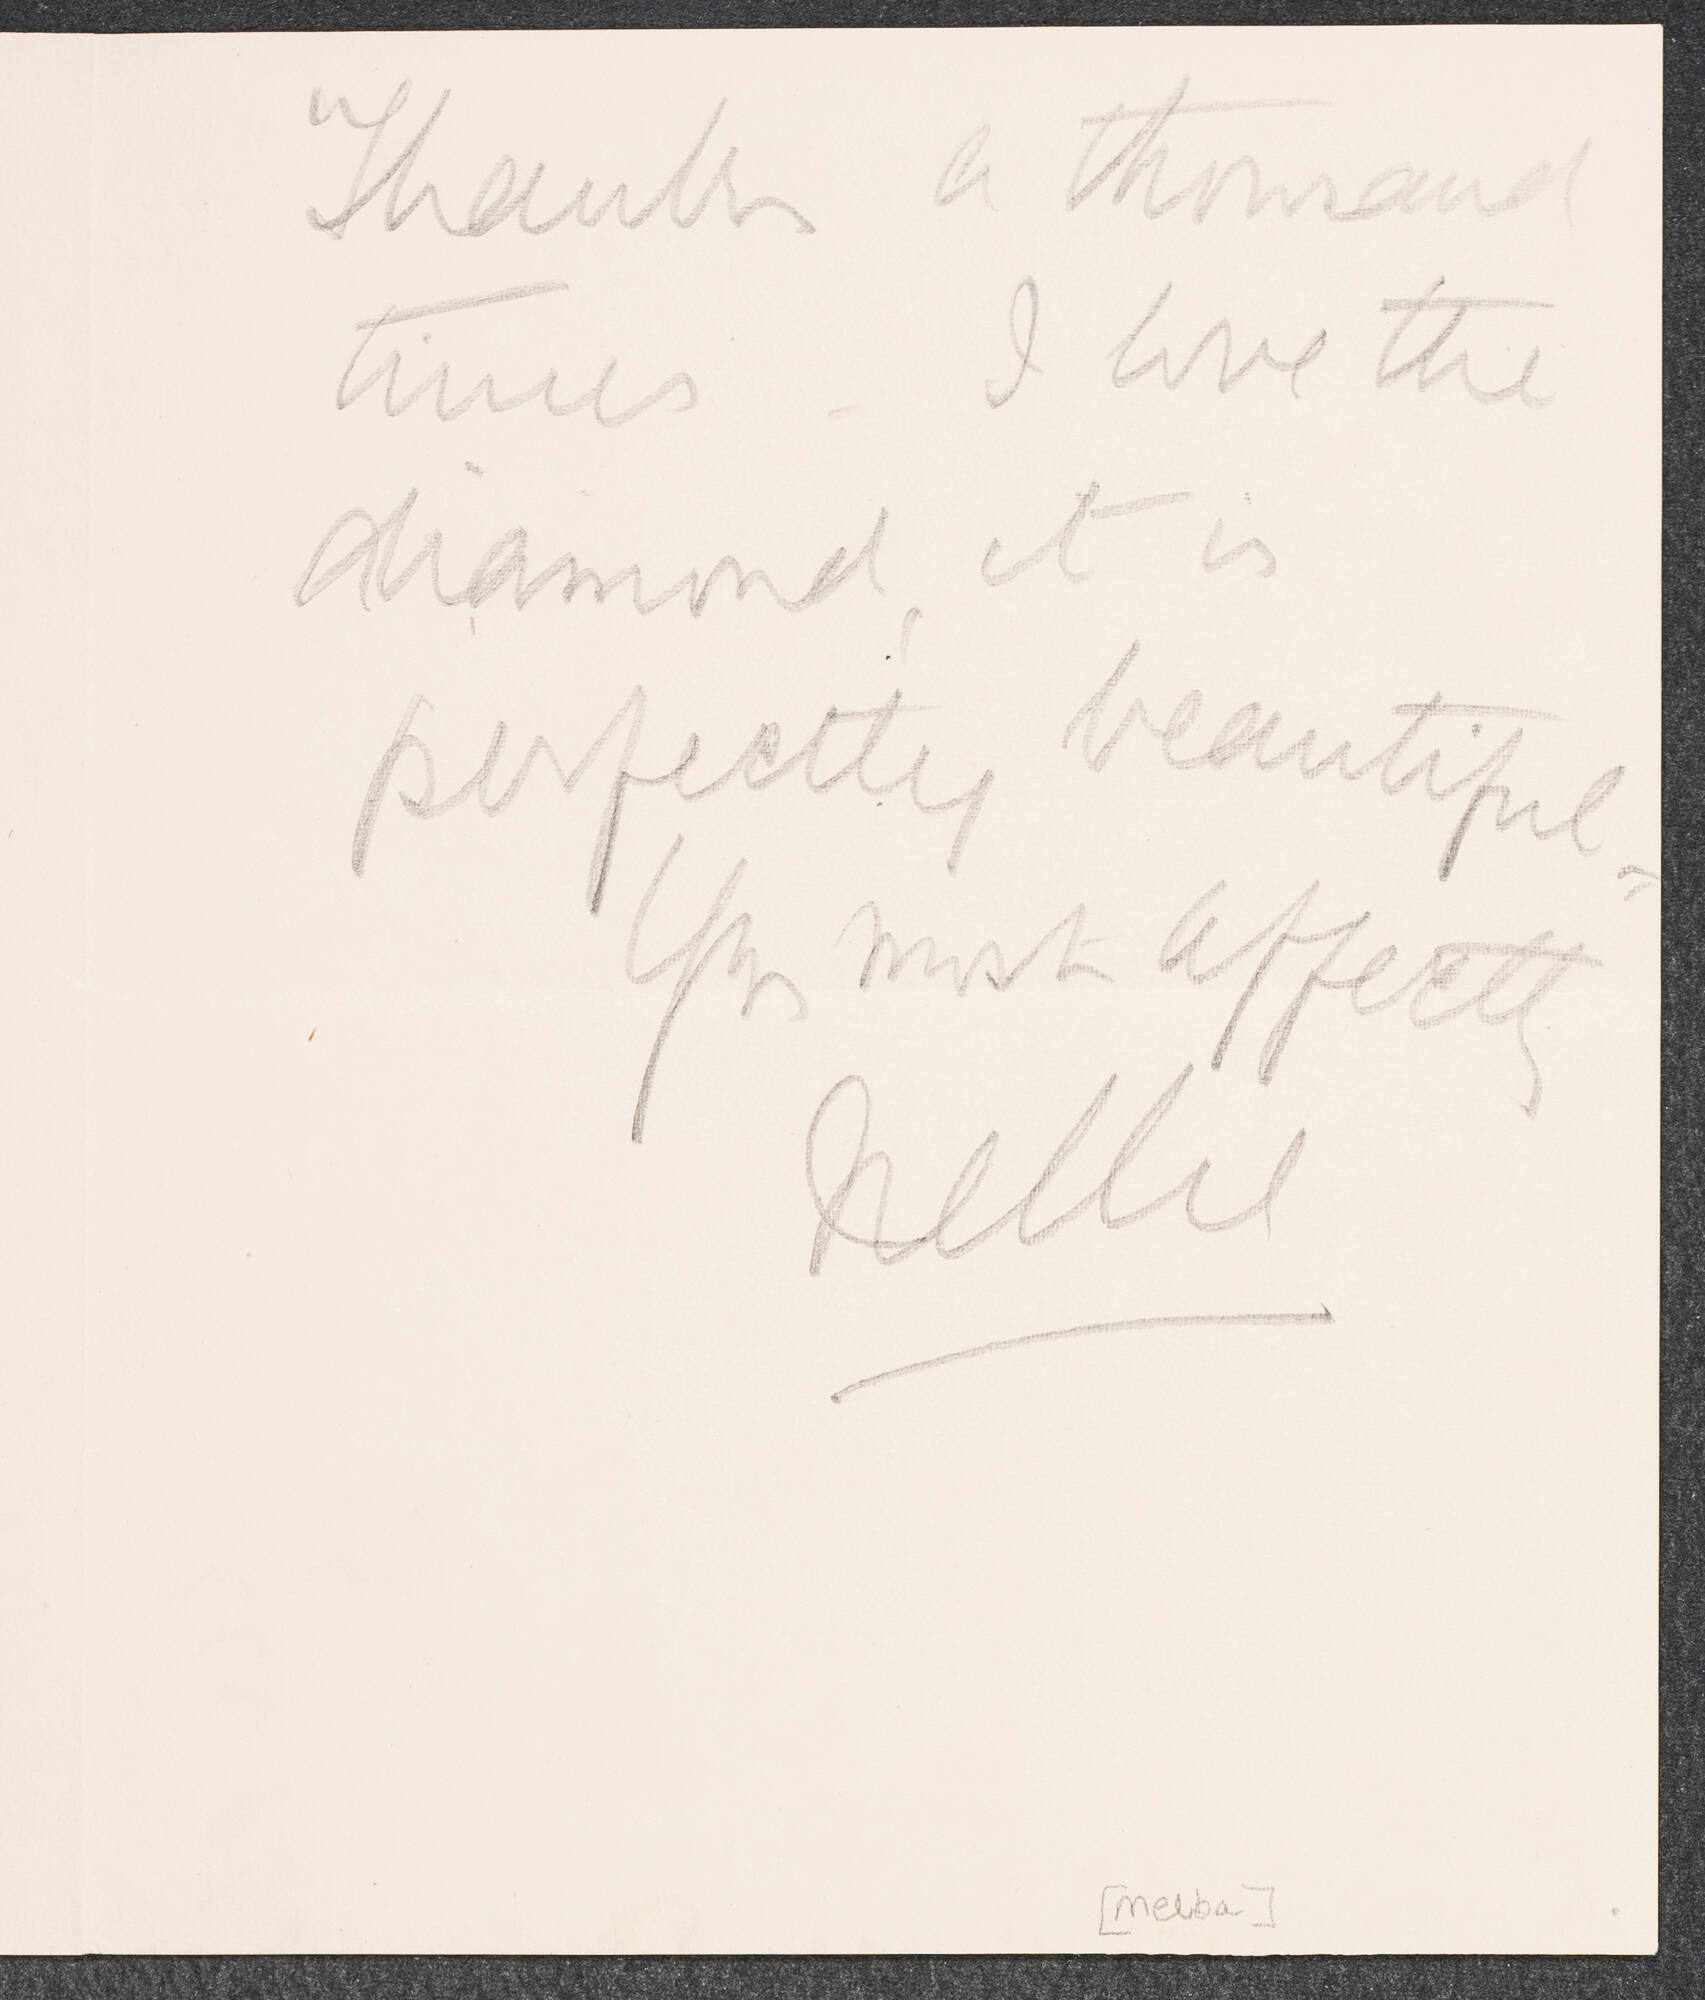 Thanks a thousand
times - I love the
diamond, it is
perfectly beautiful -
Yrs most affectly
Nellie
[Melba]